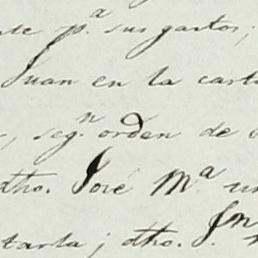 te p.ª sus gastos;
Juan en la carta
, seg.n orden de
dho. José M.ª un
tarla; dho. J.n